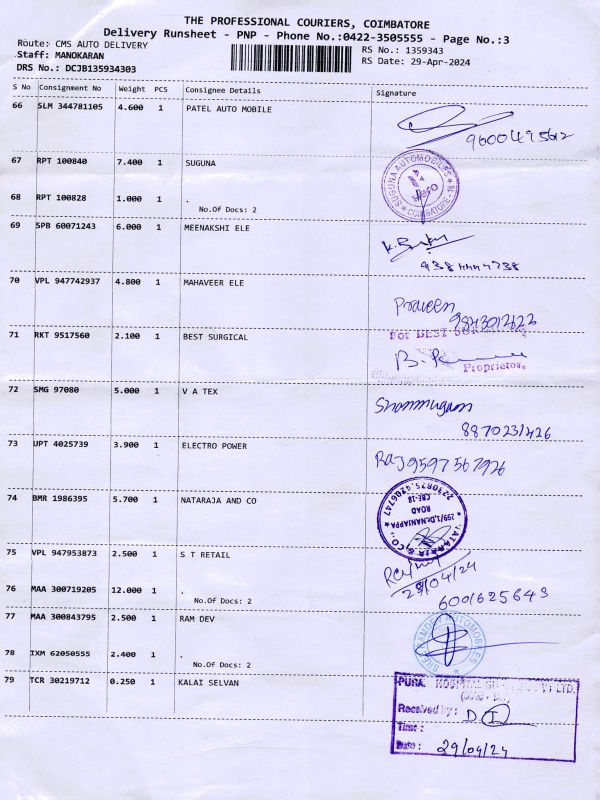 THE PROFESSIONAL COURIERS, COIMBATORE
Delivery Runsheet - PNP - Phone No.:0422-3505555 - Page No.:3
Route: CMS AUTO DELIVERY
RS No.: 1359343
Staff: MANOKARAN
RS Date: 29-Apr-2024
DRS No.: DCJB135934303
S No Consignment No Weight PCS Consignee Details Signature
66 SLM 344781105 4.600 1 PATEL AUTO MOBILE
67 RPT 100840 7.400 1 SUGUNA
SUGUNA AUTOMOBILES
COIMBATORE-18
68 RPT 100828 1.000 1 .
No.Of Docs: 2
69 SPB 60071243 6.000 1 MEENAKSHI ELE
70 VPL 947742937 4.800 1 MAHAVEER ELE
Praveen
71 RKT 9517560 2.100 1 BEST SURGICAL
For BEST
Proprietor
72 SMG 97080 5.000 1 V A TEX
Shanmugam
8870231426
73 UPT 4025739 3.900 1 ELECTRO POWER
RAJ 9597567926
74 BMR 1986395 5.700 1 NATARAJA AND CO
299/1, Dr.NANJAPPA
ROAD
CBE-18
75 VPL 947953873 2.500 1 S T RETAIL
29/04/24
76 MAA 300719205 12.000 1 .
No.Of Docs: 2
6001625643
77 MAA 300843795 2.500 1 RAM DEV
AUTOMOBILES
78 IXM 62050555 2.400 1 .
No.Of Docs: 2
79 TCR 30219712 0.250 1 KALAI SELVAN
Received by:
Time :
Date : 29/04/24